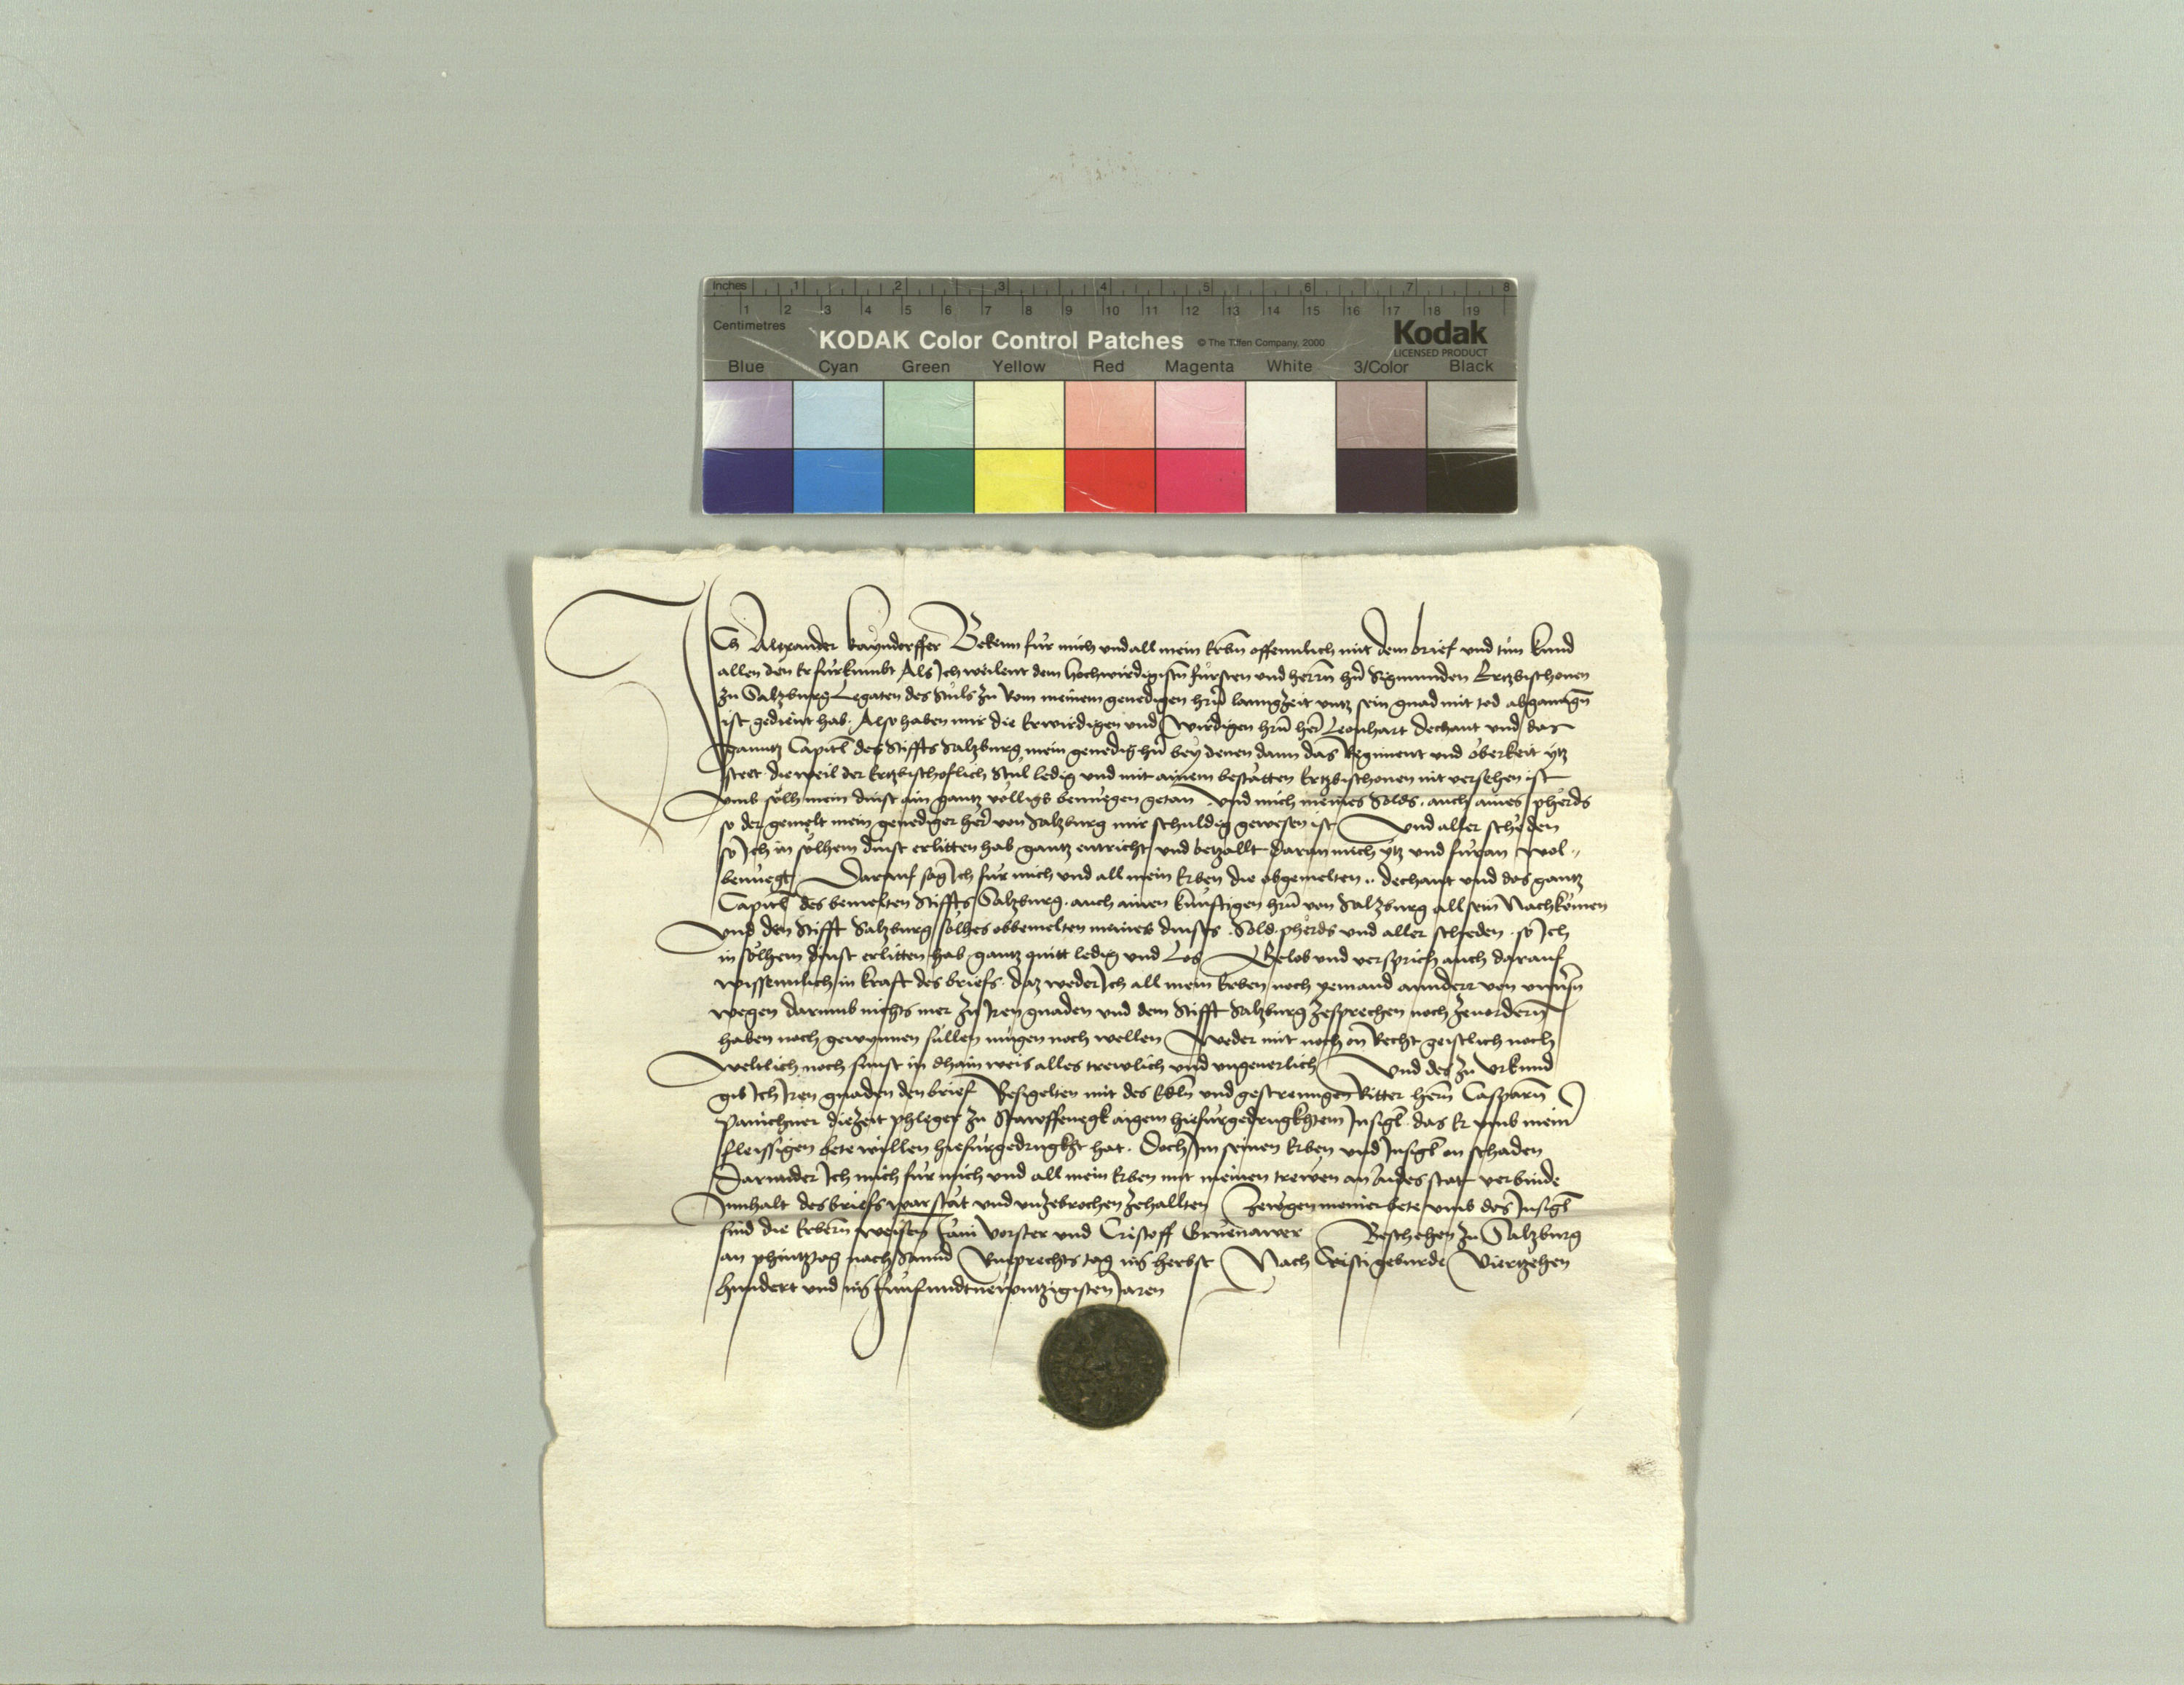 Inches 1 2 3 4 5 6 7 8
1 2 3 4 5 6 7 8 9 10 11 12 13 14 15 16 17 18 19
Centimetres
KODAK Color Control Patches © The Tiffen Company, 2000 Kodak
LICENSED PRODUCT
Blue Cyan Green Yellow Red Magenta White 3/Color Black
Ich Alexander kayndorffer Bekenn für mich und all mein Erbñ offennlich mit dem brief und tun kund
allen den er fürkumbt Als Ich weilent dem hochwirdigistñ fürsten und herrñ hrñ Sigmunden Ertzbischouen
zu Saltzburg Legaten des Stuls zu Rom meinem genedigen hrñ lanngzeit untz sein gnad mit tod abganngñ
ist gedient hab. Also haben mir die Erwirdigen und wirdigen hrñ her Leonhart dechant und das
ganntz Capitl des Stiffts Salzburg mein genedig hrñ bey denen dann das Regiment und oberkeit ytz
steet dieweil der Ertzbischoflich Stul ledig und mit ainem bestätten Ertzbischouen nit versehen ist
umb sölh mein dinst ain gantz völligs benuegen getan und mich meines Solds. auch aines pherds
so der gemelt mein genediger her von Salzburg mir schuldig gewesen ist Und aller scheden
so Ich in sölhem dinst erlitten hab gantz entricht und betzallt daran mich ytz und füran wol
benuegt Darauf sag Ich für mich und all mein Erben die obgemelten .. dechant und das gantz
Capitl des bemelten Stiffts Salzburg. auch ainen künftigen hrñ von Salzburg all sein Nachkomen
Und den Stifft Salzburg sölhes obbemelten meines dinsts . Sold. pherds und aller scheden . so Ich
in sölhem dinst erlitten hab gantz quitt ledig und Los Gelob und versprich auch darauf
wissenntlich in kraft des briefs. daz weder Ich all mein Erben noch yemand annderr von unsrñ
wegen darumb nichts mer zu Iren gnaden und dem Stifft Salzburg zesprechen noch zeuordern
haben noch gewynnen süllen mügen noch wellen Weder mit noch on Recht geistlich noch
weltlich noch sunst in dhain weis alles trewlich und ungeuerlich Und des zu Urkund
gib Ich Iren gnaden den brief Besigelten mit des Edln und gestrenngen Ritter herrñ Casparñ
Panichner diezeit phleger zu Stawffenegk aigem hiefürgedrugkhtem Insigl. das Er umb mein
fleissigen bete willen hiefürgedrugkht hat. Doch Im seinen Erben und Insigl on schaden
Darunder Ich mich für mich und all mein Erben mit meinen trewen an aides stat verbinde
Innhalt des briefs war stät und unzebrochen zehallten Zewgen meiner bete umb des Insigl
sind die Erberñ weisen Vorster und Cristoff Gruenawer Beschehen zu Salzburg
an phintztag nach Sannd Ruprechts tag im herbst Nach Cristi geburde Viertzehen
hundert und im fünfundnewntzigisten Jaren